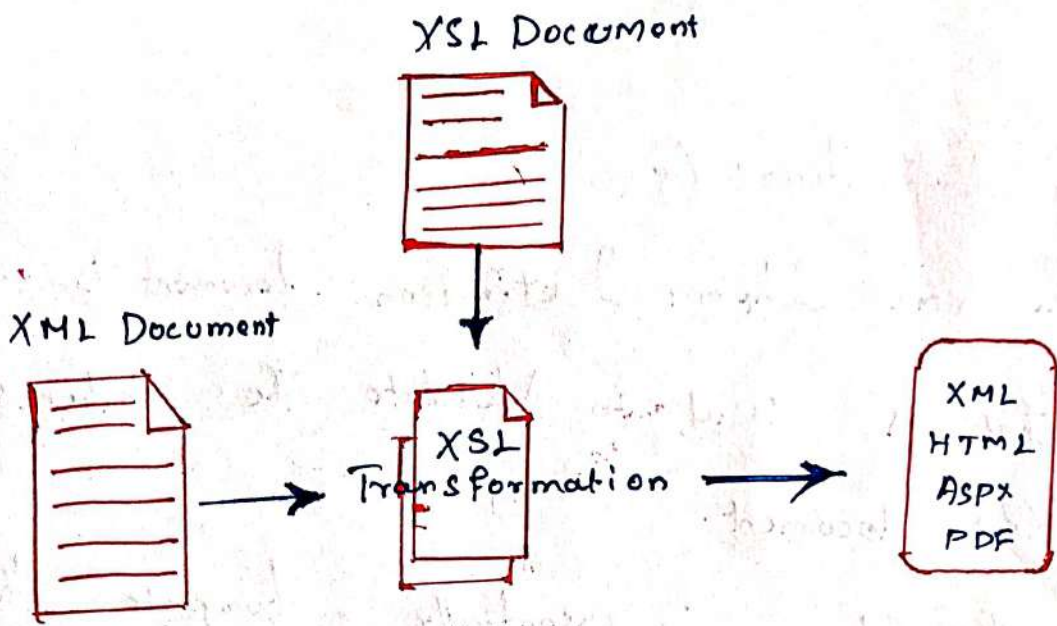 XSL Document
XML Document
XSL
Transformation
XML
HTML
ASPX
PDF